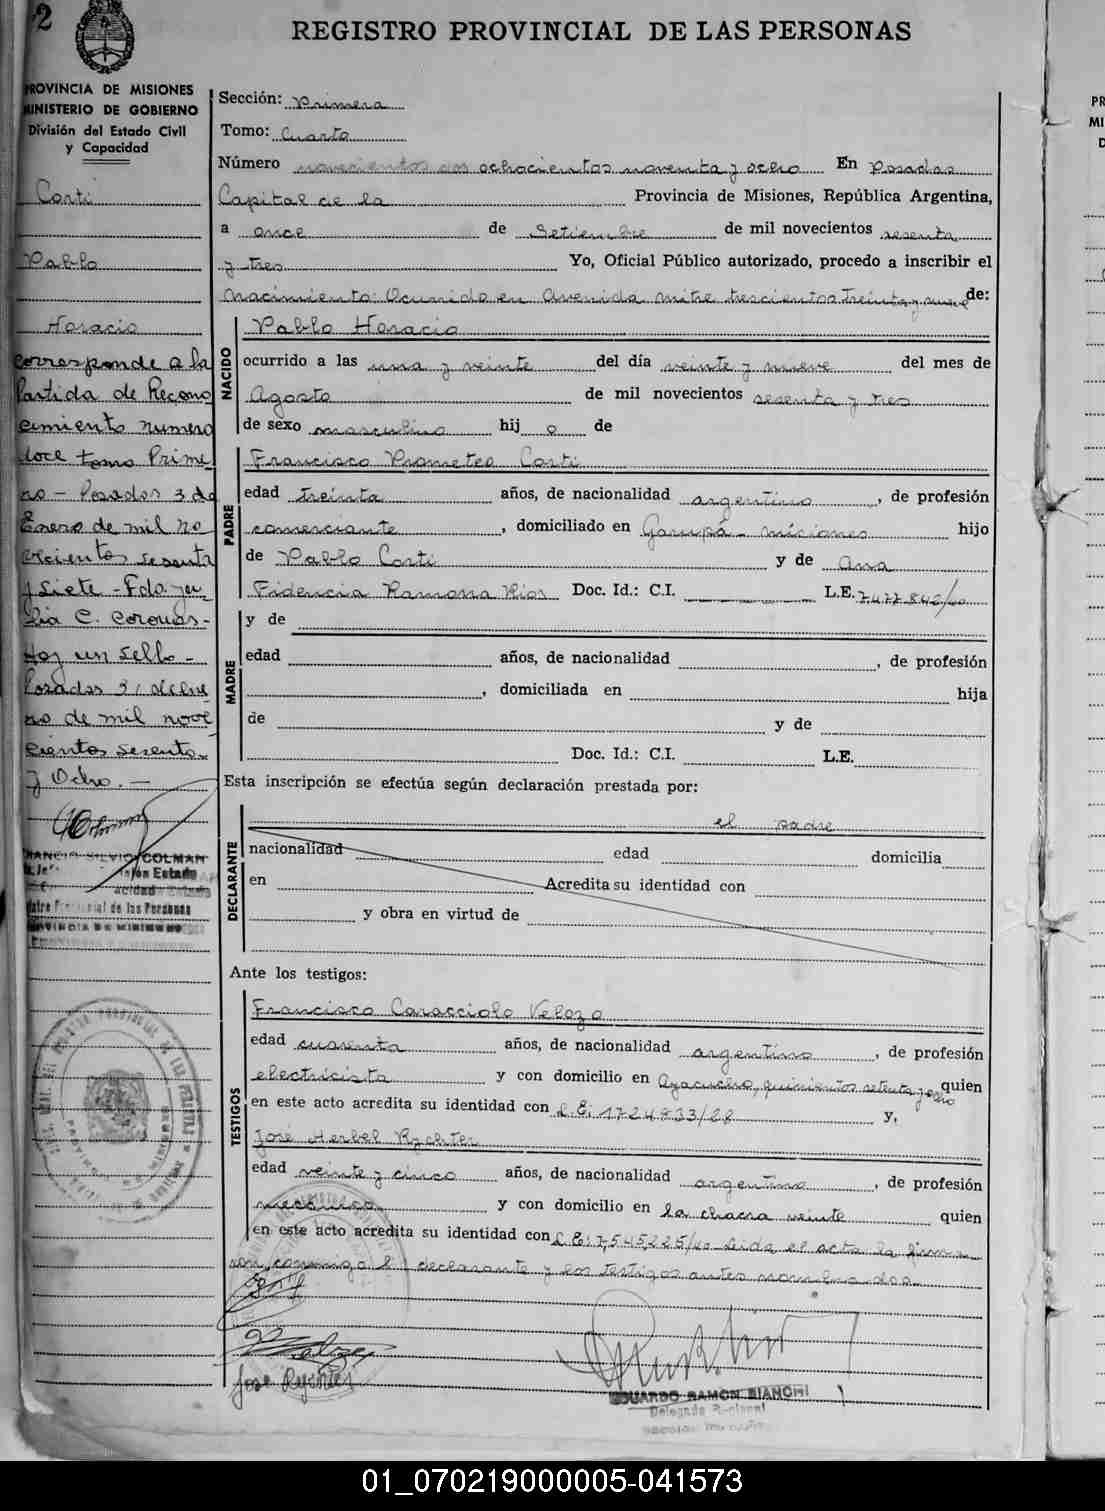 2
REGISTRO PROVINCIAL DE LAS PERSONAS
PROVINCIA DE MISIONES
MINISTERIO DE GOBIERNO
División del Estado Civil
y Capacidad
Corti
Pablo
Horacio
corresponde a la
Partida de Recono
cimiento numero
doce tomo Prime
ro - Posadas 3 de
Enero de mil no
vecientos sesenta
y Siete - Fdo. Ju
lia C. Coronas -
Hay un sello -
Posadas 31 de Ene
ro de mil nove
cientos sesenta
y Ocho. -
SILVIO COLMAN
Sección: Primera
Tomo: Cuarto
Número ochocientos noventa y ocho En Posadas
Capital de la Provincia de Misiones, República Argentina,
a once de Setiembre de mil novecientos sesenta
y tres Yo, Oficial Público autorizado, procedo a inscribir el
Nacimiento: Ocurrido en Avenida Mitre trescientos treinta y nueve de:
NACIDO
Pablo Horacio
ocurrido a las una y veinte del día veinte y nueve del mes de
Agosto de mil novecientos sesenta y tres
de sexo masculino hij o de
PADRE
Francisco Prometeo Corti
edad treinta años, de nacionalidad argentino, de profesión
comerciante, domiciliado en Garupá - Misiones hijo
de Pablo Corti y de Ana
Fidencia Ramona Rios Doc. Id.: C.I. L.E.
y de
MADRE
edad años, de nacionalidad , de profesión
, domiciliada en hija
de y de
Doc. Id.: C.I. L.E.
Esta inscripción se efectúa según declaración prestada por:
DECLARANTE
el padre
nacionalidad edad domicilia
en Acredita su identidad con
y obra en virtud de
Ante los testigos:
TESTIGOS
Francisco Caracciolo Velozo
edad cuarenta años, de nacionalidad argentino, de profesión
electricista y con domicilio en Ayacucho, quinientos setenta y ocho quien
en este acto acredita su identidad con L.E. y,
José Herbel Rychter
edad veinte y cinco años, de nacionalidad argentino, de profesión
mecánico y con domicilio en la chacra veinte quien
en este acto acredita su identidad con L.E: 7,545,225/ Leida el acta la firma
ron conmigo el declarante y los testigos antes nombrados.
Jose Rychter
EDUARDO RAMON BIANCHI
01_070219000005-041573